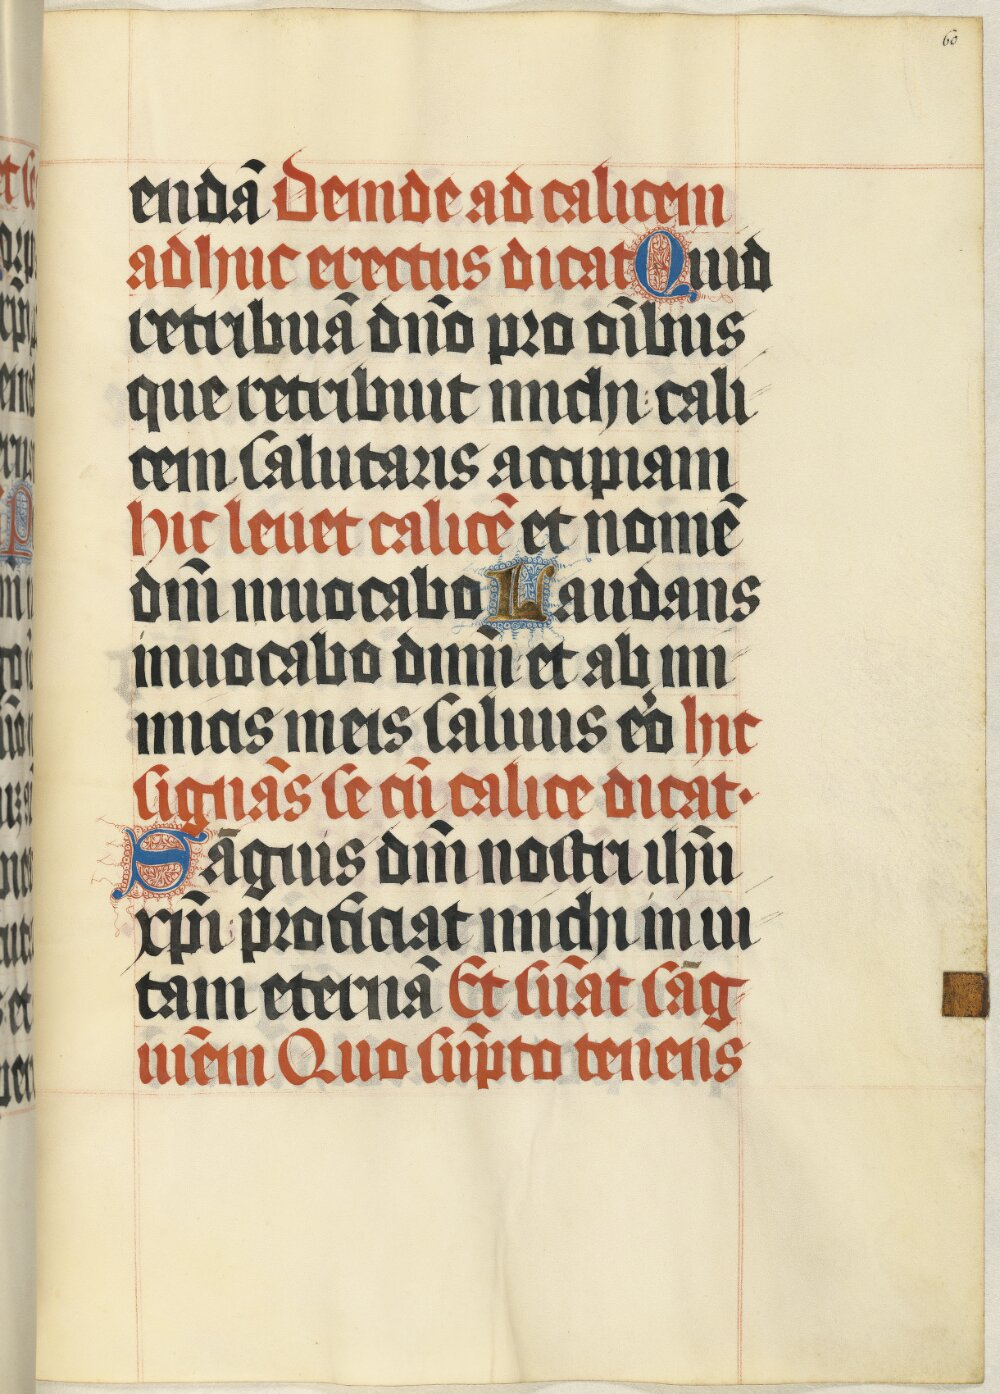 60
endā Deinde ad calicem
adhuc erectus dicat Quid
retribuā dn̄o pro oībus
que retribuit michi: cali
cem salutaris accipiam
hic leuet calicē et nomē
dn̄i inuocabo Laudans
inuocabo dn̄m: et ab ini
micis meis saluus e͛o hic
signās se cū calice dicat·
Sāguis dn̄i nostri ihū
xp̄i proficiat michi in ui
tam eternā Et sūat sāg
uinem Quo sūpto tenens